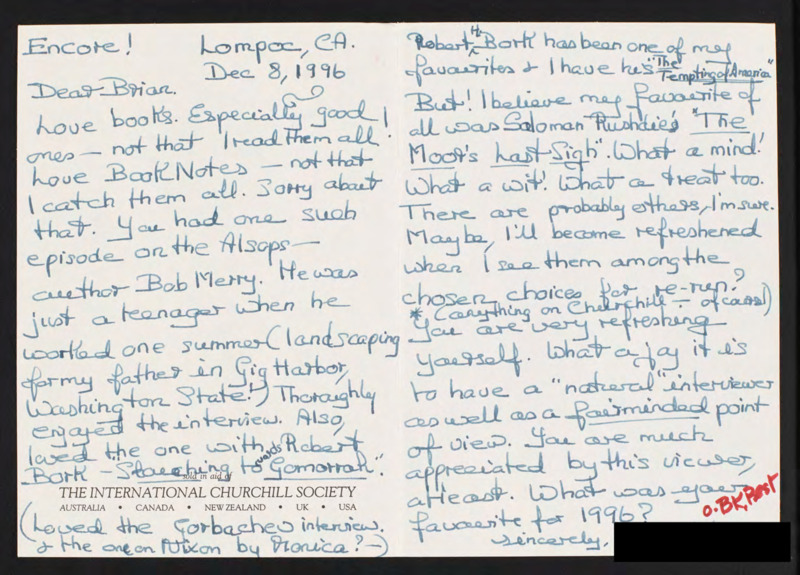 Encore! Lompoc, CA.
Dec 8, 1996
Dear Brian.
Love books. Especially good
ones — not that I read them all!
Love BookNotes — not that
I catch them all. Sorry about
that. You had one such
episode on the Alsops —
author Bob Merry. He was
just a teenager when he
worked one summer (landscaping
for my father in Gig Harbor,
Washington State!) Thoroughly
enjoyed the interview. Also,
loved the one with Robert
Bork — Slouching towards Gomorrah".
sold in aid of
THE INTERNATIONAL CHURCHILL SOCIETY
AUSTRALIA • CANADA • NEW ZEALAND • UK • USA
(Loved the Gorbachev interview.
& the one on Nixon by Monica?—)
Robert H. Bork has been one of my
favourites & I have his "The
Tempting of America"
But! I believe my favourite of
all was Soloman Rushdie's "The
Moor's Last Sigh". What a mind!
What a wit! What a treat too.
There are probably others, I'm sure.
Maybe, I'll become refreshened
when I see them among the
chosen choices for re-run?
* (anything on Churchill — of course)
You are very refreshing
yourself. What a joy it is
to have a "natural" interviewer
as well as a fairminded point
of view. You are much
appreciated by this viewer,
atleast. What was your
favourite for 1996?
sincerely,